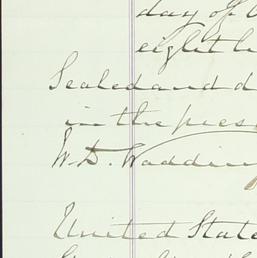 day of
eight h
Sealed and d
in the pres
W. D. Waddin
United State